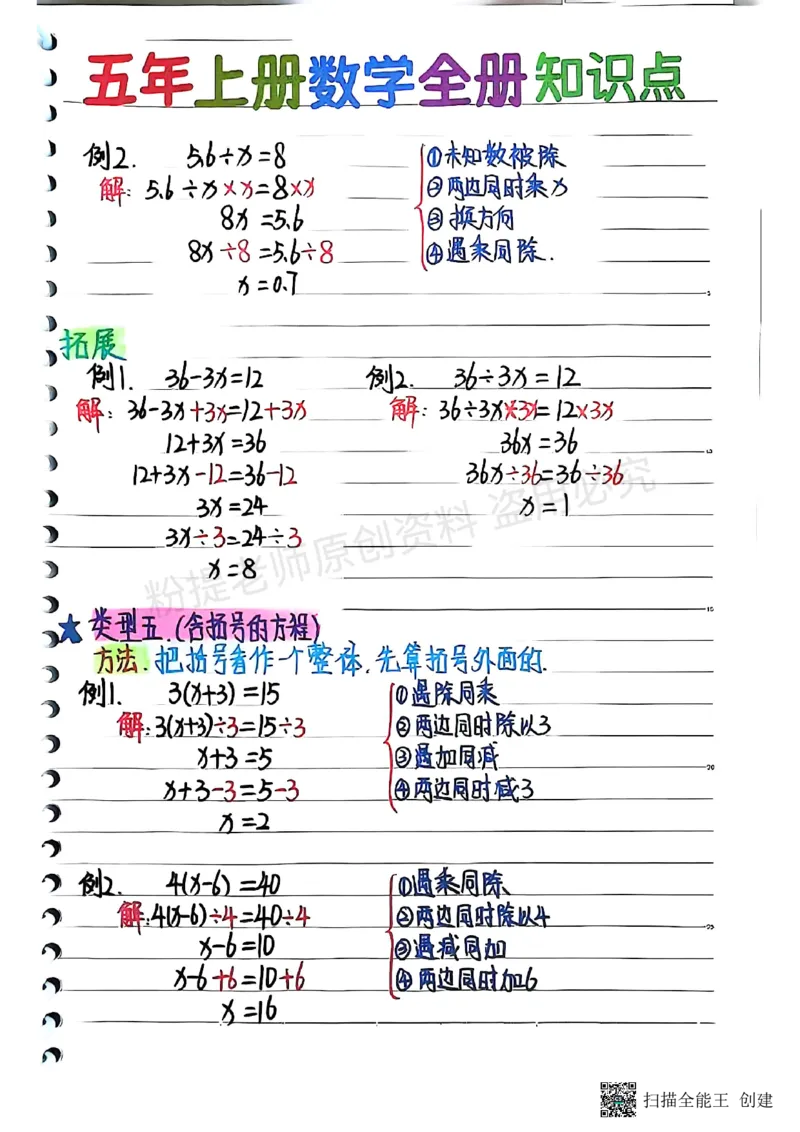 五年上册数学全册知识点
例2. 5.6÷x=8
解: 5.6÷x×x=8×x
8x=5.6
8x÷8=5.6÷8
x=0.7
①未知数被除
②两边同时乘x
③换方向
④遇乘同除.
拓展
例1. 36-3x=12
解: 36-3x+3x=12+3x
12+3x=36
12+3x-12=36-12
3x=24
3x÷3=24÷3
x=8
例2. 36÷3x=12
解: 36÷3x×3x=12×3x
36x=36
36x÷36=36÷36
x=1
粉提老师原创资料 盗用必究
★类型五.(含括号的方程)
方法.把括号看作一个整体.先算括号外面的.
例1. 3(x+3)=15
解:3(x+3)÷3=15÷3
x+3=5
x+3-3=5-3
x=2
①遇除同乘
②两边同时除以3
③遇加同减
④两边同时减3
例2. 4(x-6)=40
解:4(x-6)÷4=40÷4
x-6=10
x-6+6=10+6
x=16
①遇乘同除
②两边同时除以4
③遇减同加
④两边同时加6
5
10
15
20
25
扫描全能王 创建